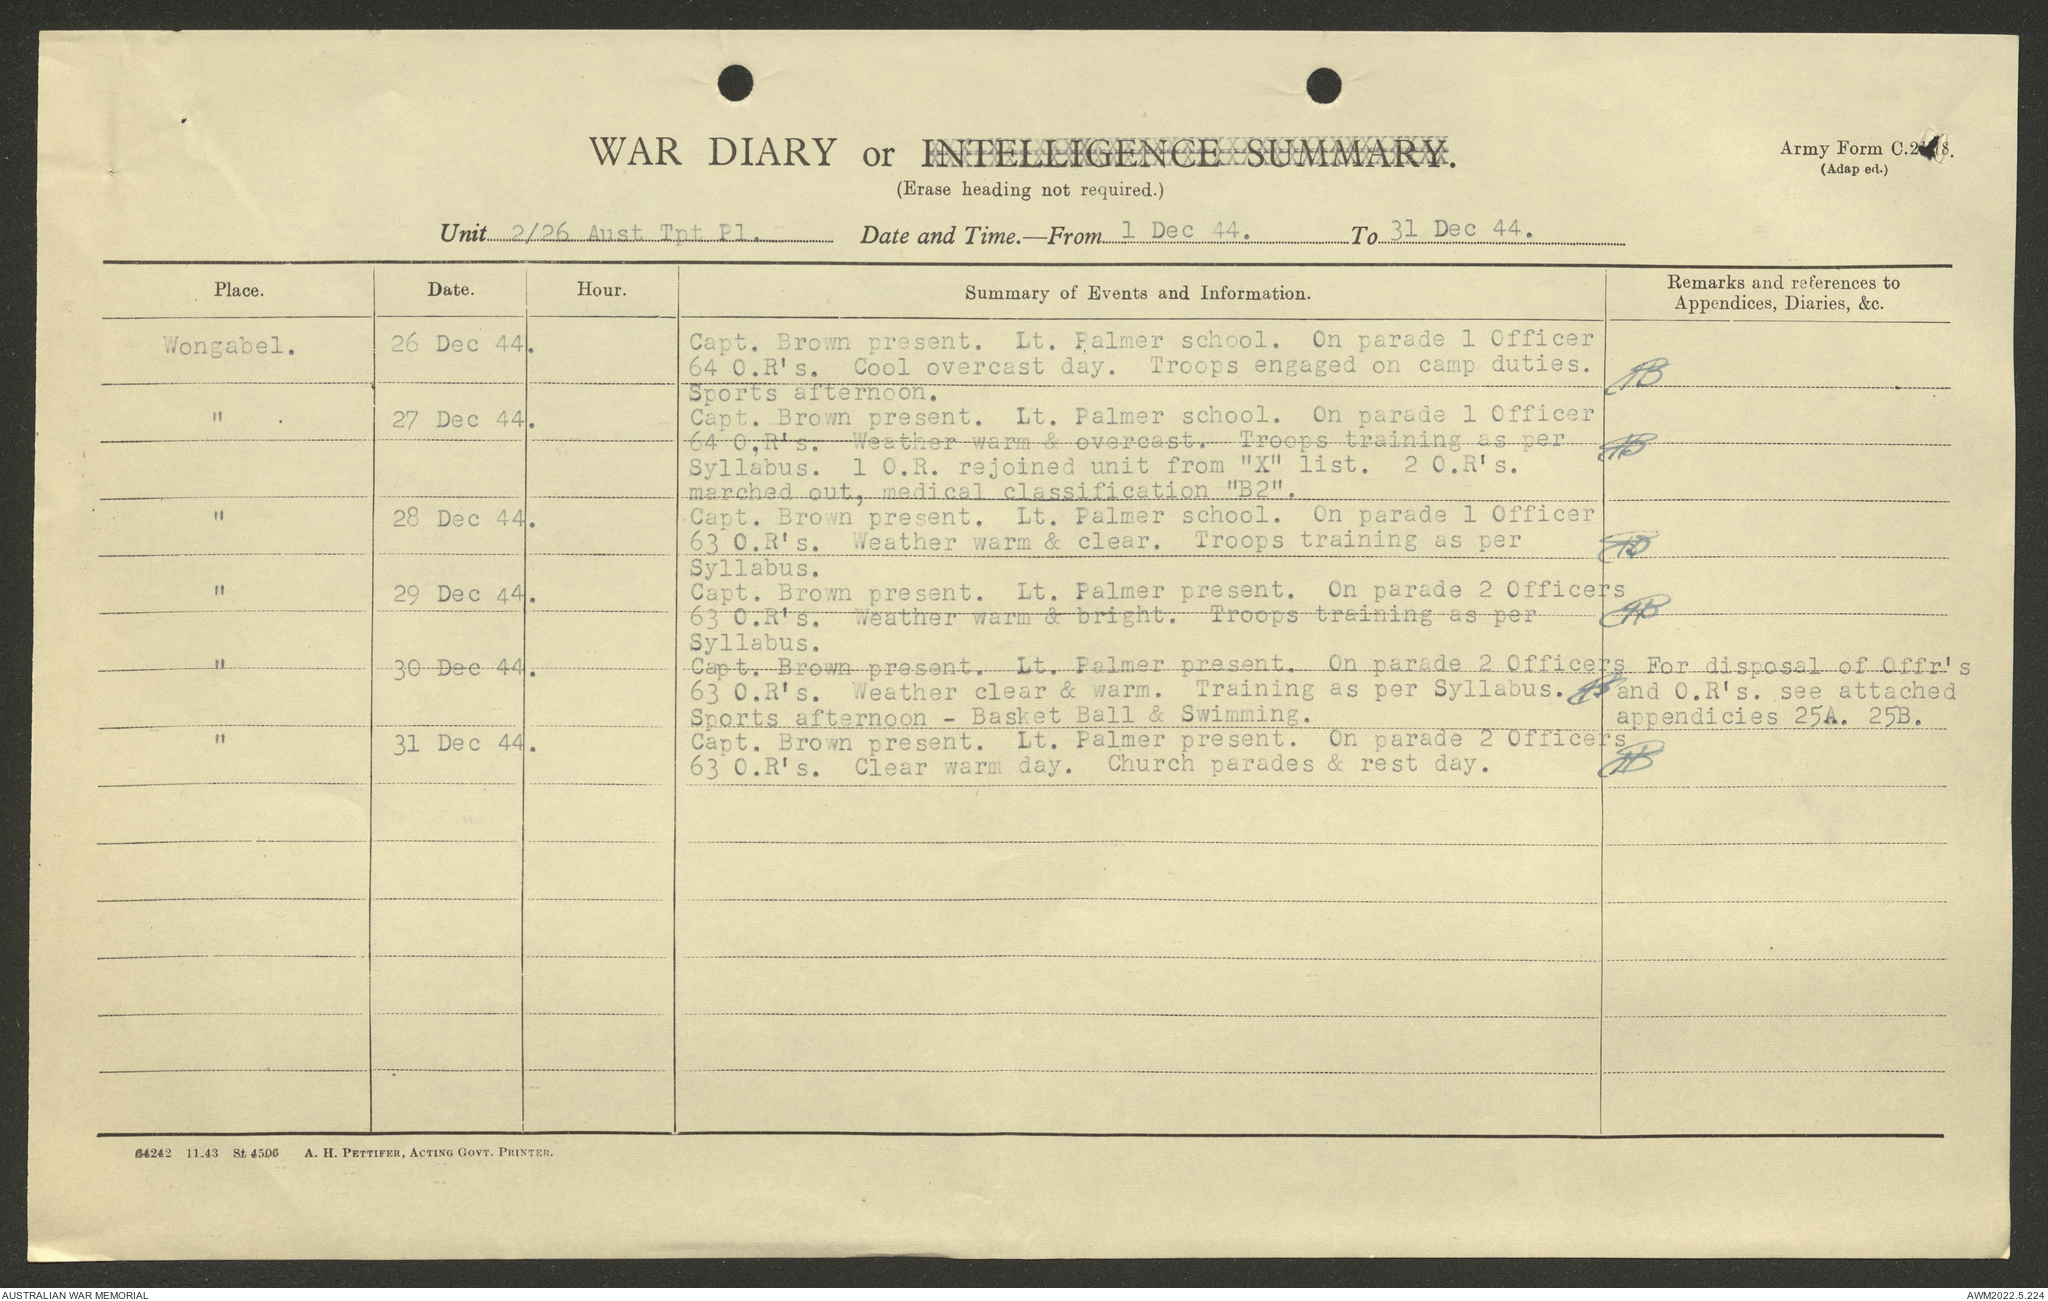 WAR DIARY or INTELLIGENCE SUMMARY.
(Erase heading not required.)
Army Form C.2118.
(Adapted.)
Unit 2/26 Aust Tpt Pl. Date and Time.—From 1 Dec 44. To 31 Dec 44.
Place. Date. Hour. Summary of Events and Information. Remarks and references to Appendices, Diaries, &c.
Wongabel. 26 Dec 44. Capt. Brown present. Lt. Palmer school. On parade 1 Officer
64 O.R's. Cool overcast day. Troops engaged on camp duties.
Sports afternoon.
" 27 Dec 44. Capt. Brown present. Lt. Palmer school. On parade 1 Officer
64 O.R's. Weather warm & overcast. Troops training as per
Syllabus. 1 O.R. rejoined unit from "X" list. 2 O.R's.
marched out, medical classification "B2".
" 28 Dec 44. Capt. Brown present. Lt. Palmer school. On parade 1 Officer
63 O.R's. Weather warm & clear. Troops training as per
Syllabus.
" 29 Dec 44. Capt. Brown present. Lt. Palmer present. On parade 2 Officers
63 O.R's. Weather warm & bright. Troops training as per
Syllabus.
" 30 Dec 44. Capt. Brown present. Lt. Palmer present. On parade 2 Officers For disposal of Offr's
63 O.R's. Weather clear & warm. Training as per Syllabus. and O.R's. see attached
Sports afternoon - Basket Ball & Swimming. appendicies 25A. 25B.
" 31 Dec 44. Capt. Brown present. Lt. Palmer present. On parade 2 Officers
63 O.R's. Clear warm day. Church parades & rest day.
64242 11.43 St 4506 A. H. PETTIFER, ACTING GOVT. PRINTER.
AUSTRALIAN WAR MEMORIAL
AWM2022.5.224